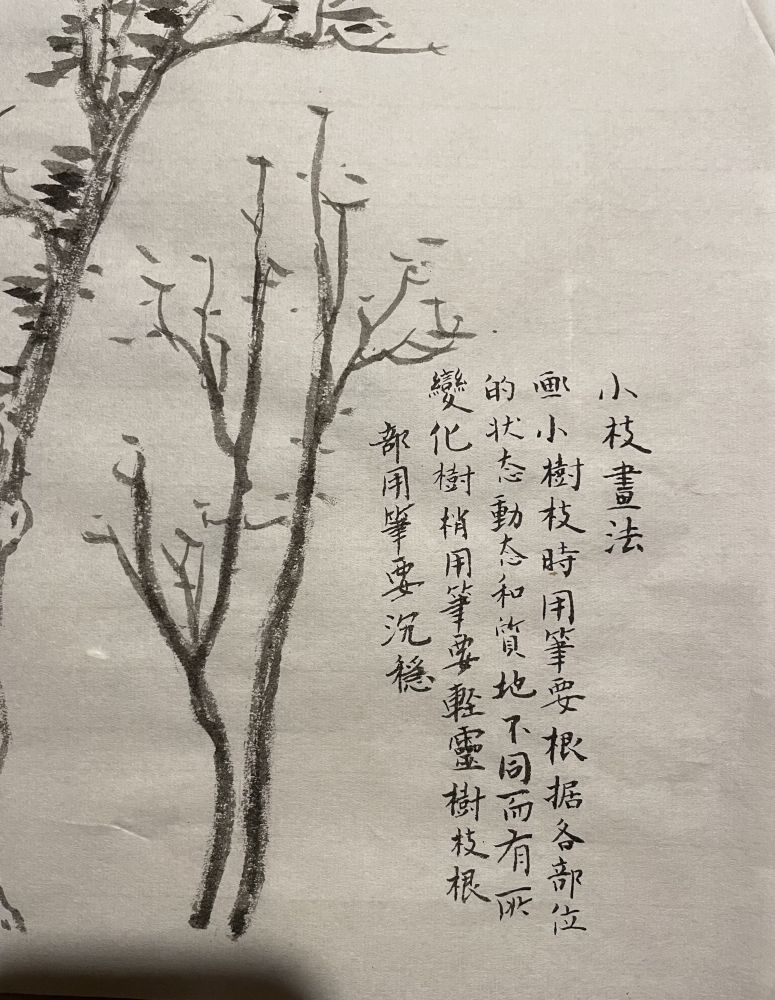 小枝畫法
画小樹枝時用筆要根据各部位
的状态動态和質地不同而有所
變化樹梢用筆要軽靈樹枝根
部用筆要沉穩